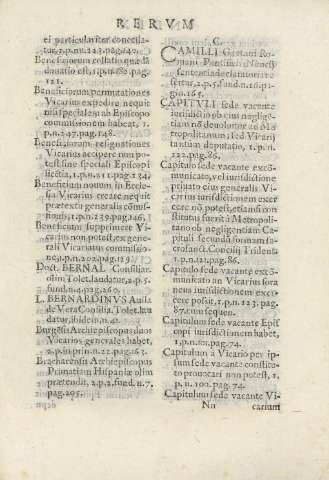 RERVM
ei particulariter concella-
tur, 2.p.n. 123. pag. 147.
Beneficiorum collatio quædã
donatio est, 1.p.n. pag.
121.
Beneficiorum permutationes
Vicarius expedire nequit
nisi specialem ab Episcopo
commissionem habeat, 1.
p.n. 247. pag. 148.
Beneficiorum resignationes
Vicarius recipere non po-
test sine speciali Episcopi
licētia, 1.p.n. 211. pag. 134.
Beneficium nouum in Eccle-
sia Vicarius creare nequit
prætextu generalis cōmis-
sionis, 1.p.n. 239. pag. 146.
Beneficium supprimere Vi-
carius non potest, ex gene-
rali Vicariatus commissio-
ne, 1.p.n. 202. pag. 129.
Doct. BERNAL Consiliar.
olim Tolet. laudatur, 2.p.5.
fund. n. 4. pag. 269.
L. BERNARDINVS Auila
de Vera Consilia. Tolet. lau-
datur, ibidem, n. 4.
Burgēsis Archiepiscopus duos
Vicarios generales habet,
2.p. in prin. n. 22. pag. 163.
Bracharensis Archiepiscopus
Primatiam Hispaniæ olim
prætendit, 2.p. 2. fund. n. 7.
pag. 205.
C.
CAMILLI Gaetani Ro-
mani Pontificis Nuncij
sententia declaratoria re-
fertur, 2.p. 5. fund. n. 16. pa-
gin. 265.
CAPITVLI sede vacante
iurisdictio ob eius neglige-
tiam nō deuoluitur ad Me-
tropolitanum, sed Vicarij
tantùm deputatio, 1.p.n.
122. pag. 86.
Capitulo sede vacante excō-
municato, vel iurisdictione
priuato eius generalis Vi-
carius iurisdictionem exer-
cere nō potest, etiamsi con-
stitutus fuerit à Metropoli-
tano ob negligentiam Ca-
pituli secundū formam sa-
crosanct. Concilij Tridenti.
1.p.n. 121. pag. 86.
Capitulo sede vacante excō-
municato an Vicarius fora-
neus iurisdictionem exer-
cere possit, 1.p.n. 123. pag.
87. cum sequen.
Capitulum sede vacante Epis
copi iurisdictionem habet,
1.p.n. 101. pag. 74.
Capitulum à Vicario per ip-
sum sede vacante constitu-
to prouocari non potest, 1.
p. n. 100. pag. 74.
Capitulum sede vacante Vi-
Nn carium